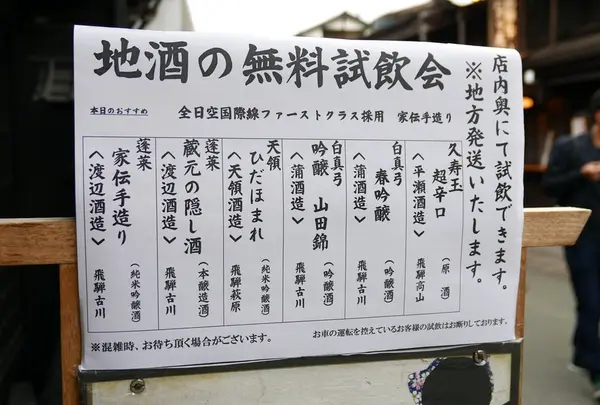 地酒の無料試飲会
店内奥にて試飲できます。
※地方発送いたします。
本日のおすすめ
全日空国際線ファーストクラス採用 家伝手造り
久寿玉
超辛口
(原酒)
<平瀬酒造>
飛騨高山
白真弓
春吟醸
(吟醸酒)
<蒲酒造>
飛騨古川
白真弓
吟醸 山田錦
(吟醸酒)
<蒲酒造>
飛騨古川
天領
ひだほまれ
(純米吟醸酒)
<天領酒造>
飛騨萩原
蓬莱
蔵元の隠し酒
(本醸造酒)
<渡辺酒造>
飛騨古川
蓬莱
家伝手造り
(純米吟醸酒)
<渡辺酒造>
飛騨古川
お車の運転を控えているお客様の試飲はお断りしております。
※混雑時、お待ち頂く場合がございます。